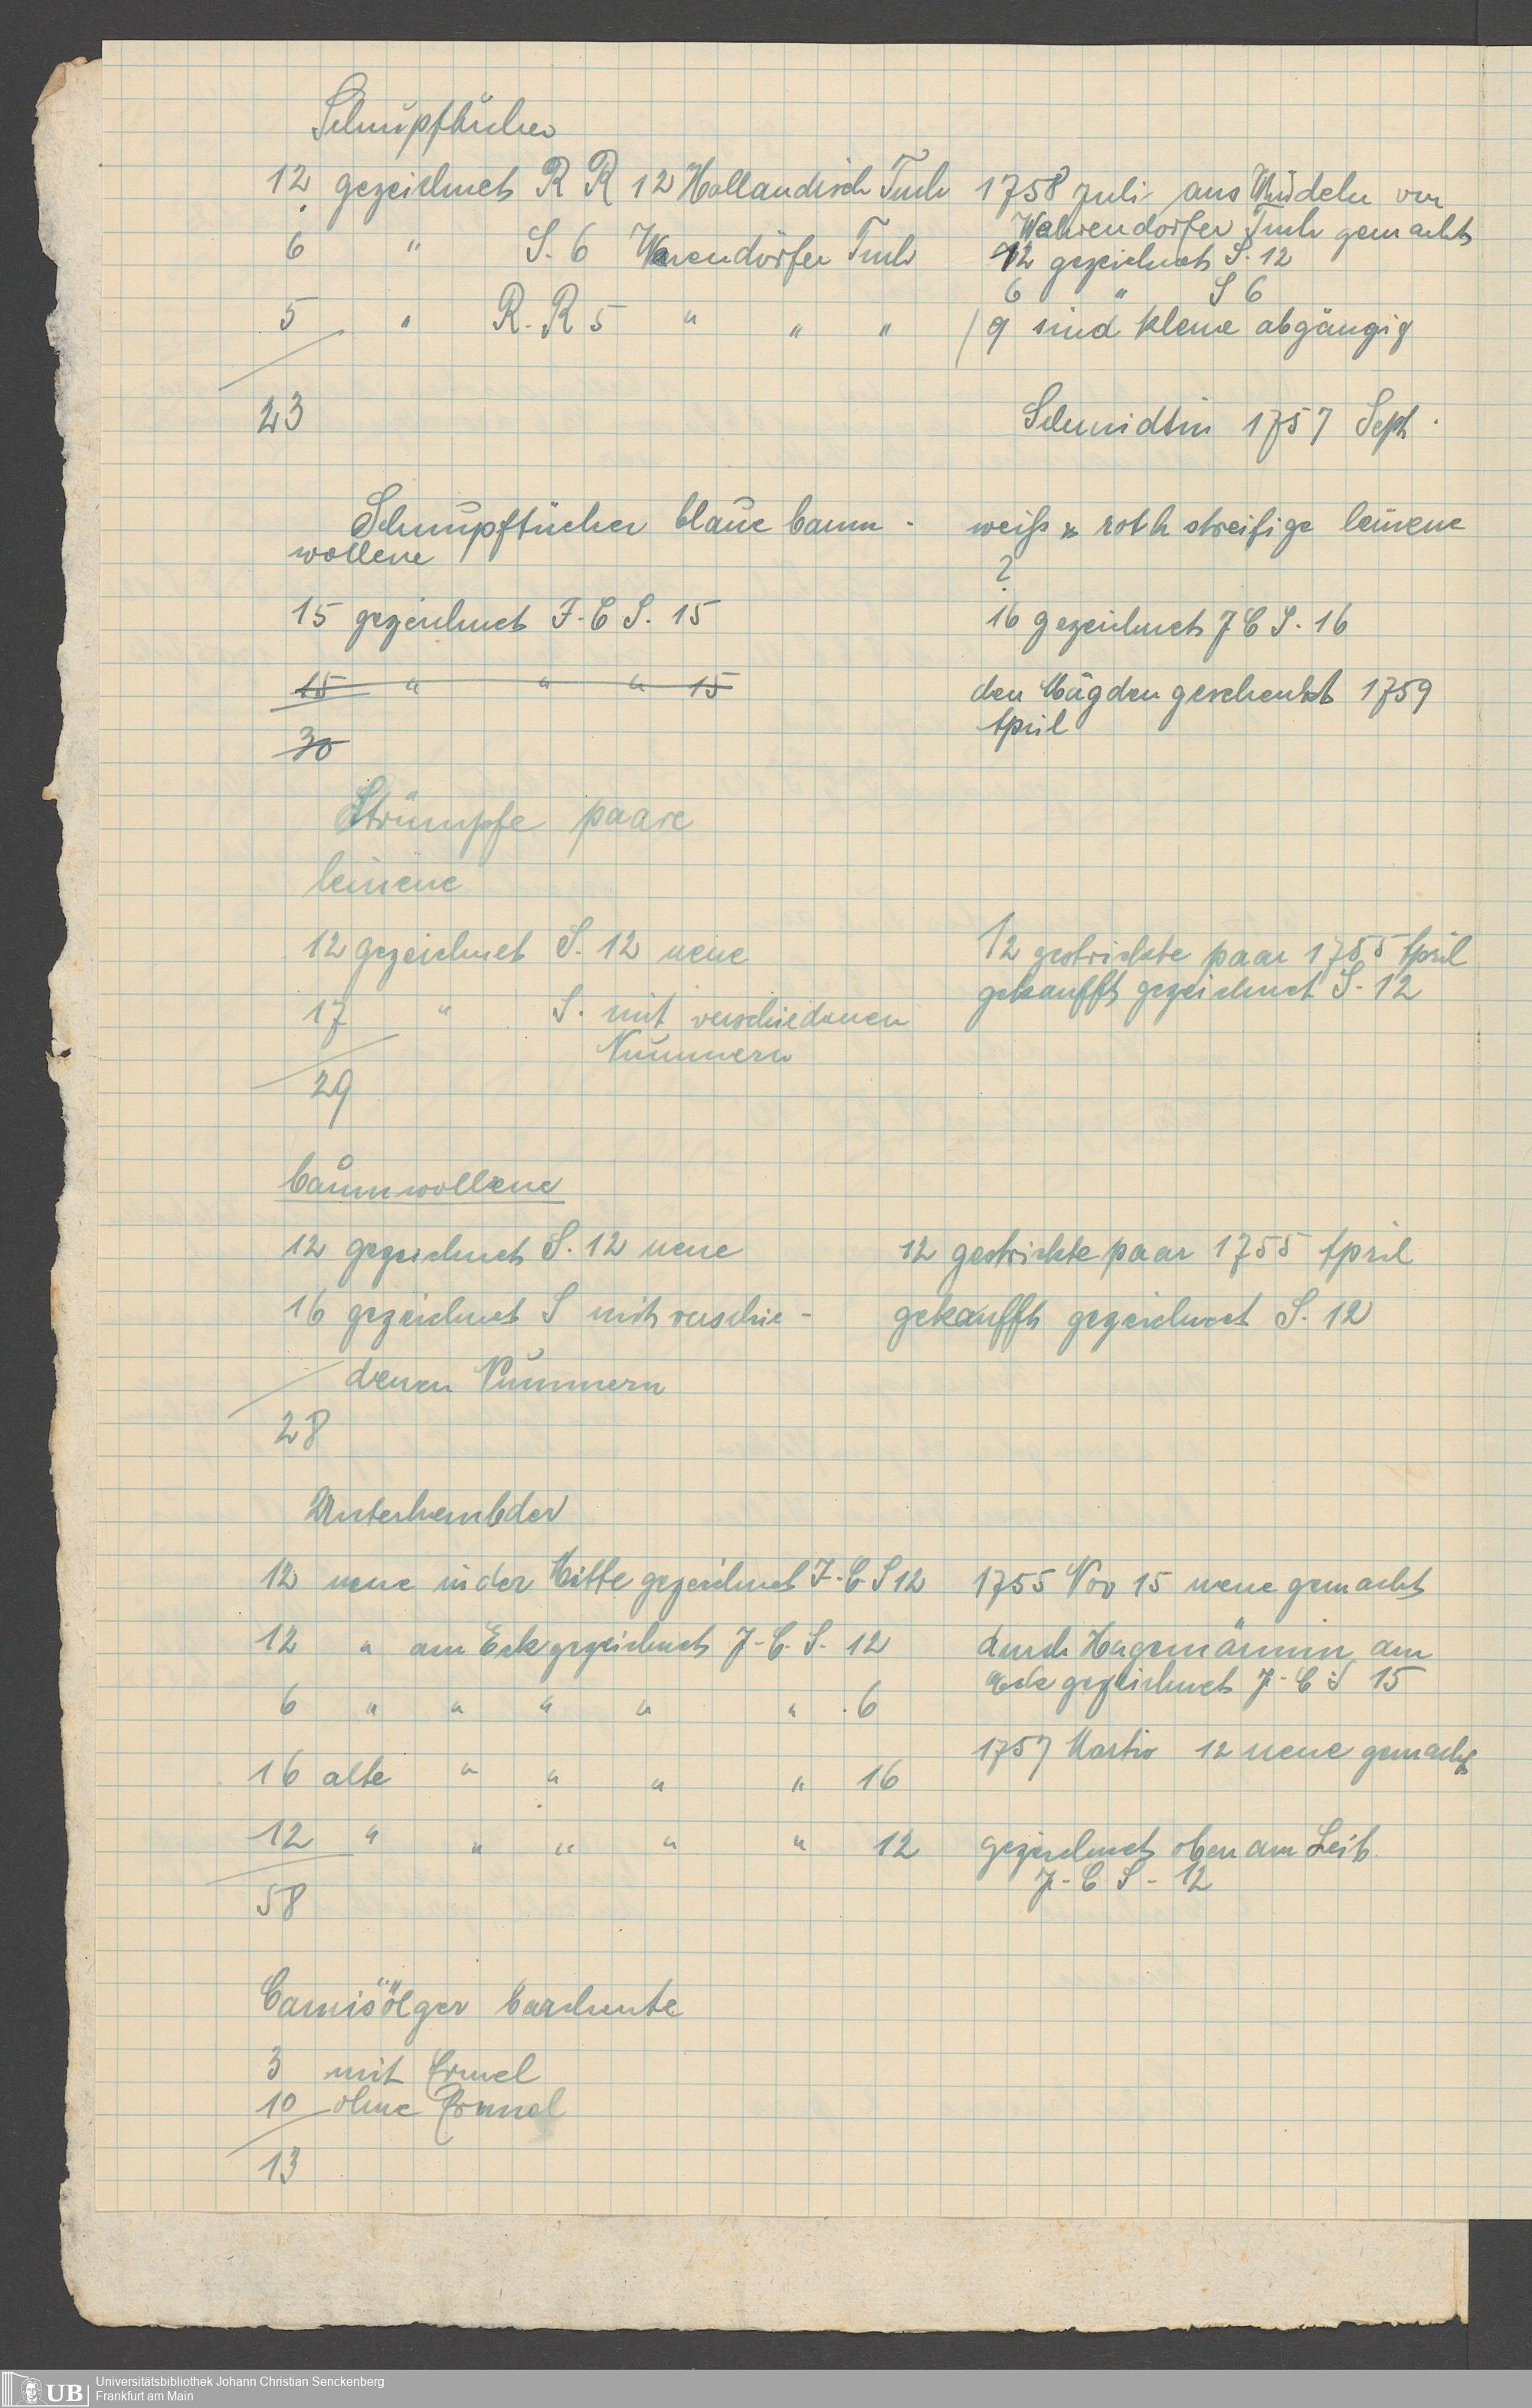 Schnupftücher
12 gezeichnet R R 12 Hollandisch Tuch
6 " S. 6 Warendörfer Tuch
5 " R. R 5 " " "
23
1758 Juli aus von
Wahrendorfer Tuch gemacht
12 gezeichnet S. 12
6 " S 6
9 sind kleine abgängig
Schmidtin 1757 Sept.
Schnupftücher blaue baum-
wollene
15 gezeichnet J. C S. 15
15 " " " 15
30
weiss & roth streifige leinene
?
16 gezeichnet J C S. 16
den Mägden geschenkt 1759
April
Strümpfe paare
leinene
12 gezeichnet S. 12 neue
17 " S. mit verschiedenen
Nummern
29
12 gestrickte paar 1755 April
gekaufft gezeichnet S. 12
baumwollene
12 gezeichnet S. 12 neue
16 gezeichnet S mit verschie-
denen Nummern
28
12 gestrickte paar 1755 April
gekaufft gezeichnet S. 12
Unterhembder
12 neue in der Mitte gezeichnet J. C. S 12
12 " am Eck gezeichnet J-C. S. 12
6 " " " " " 6
16 alte " " " " 16
12 " " " " " 12
58
1755 Nov 15 neue gemacht
durch Hagemännin am
Eck gezeichnet J-C S 15
1757 Martio 12 neue gemacht
gezeichnet oben am Leib
J-C S- 12
Camisölger barchente
3 mit Ermel
10 ohne Ermel
13
UB
Universitätsbibliothek Johann Christian Senckenberg
Frankfurt am Main